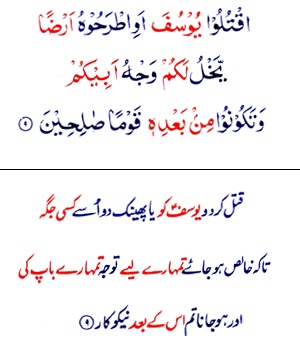 اقْتُلُوْا يُوْسُفَ اَوِاطْرَحُوْهُ اَرْضًا
يَّخْلُ لَكُمْ وَجْهُ اَبِيْكُمْ
وَتَكُوْنُوْا مِنْۢ بَعْدِهٖ قَوْمًا صٰلِحِيْنَ ۹
قتل کردو یوسفؑ کو یا پھینک دو اُسے کسی جگہ
تاکہ خالص ہو جائے تمہارے لیے توجہ تمہارے باپ کی
اور ہو جانا تم اس کے بعد نیکوکار ۹